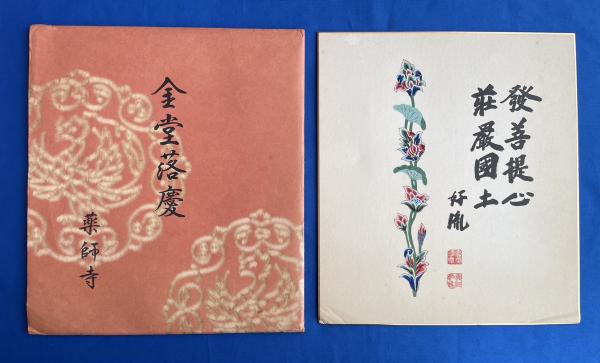 金堂落慶
薬師寺
發菩提心
莊嚴國土
好胤